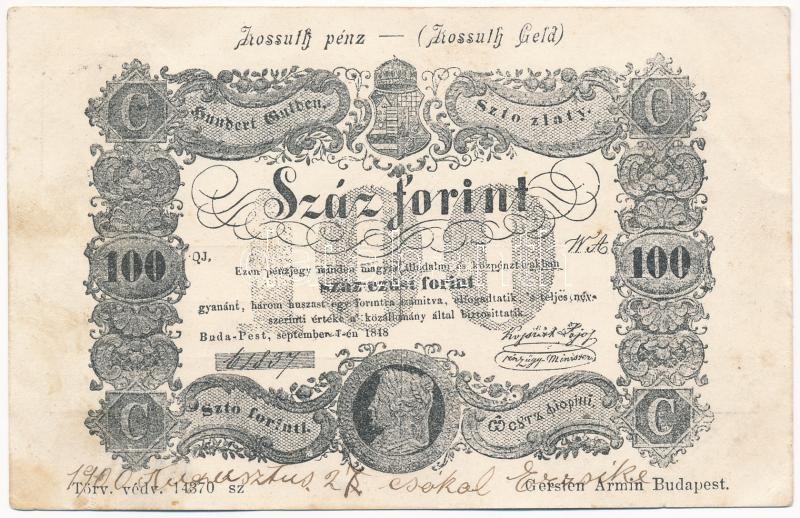 Kossuth pénz — (Kossuth Geld)
C C
Hundert Gulden. Szto zlaty.
Száz forint
100 100
QJ, W. A
Ezen pénzjegy minden magyar álladalmi és közpénztárakban
száz ezüst forint
gyanánt, három huszast egy forintra számitva, elfogadtatik, 's teljes név-
szerinti értéke a' közállomány által biztosittatik.
Buda-Pest, september 1-én 1848
Kossuth Lajos
pénzügy Minister
Szto forinti.
C C
1900 Augusztus 27 csokol Erzsike
Törv. védv. 14370 sz Gersten Ármin Budapest.